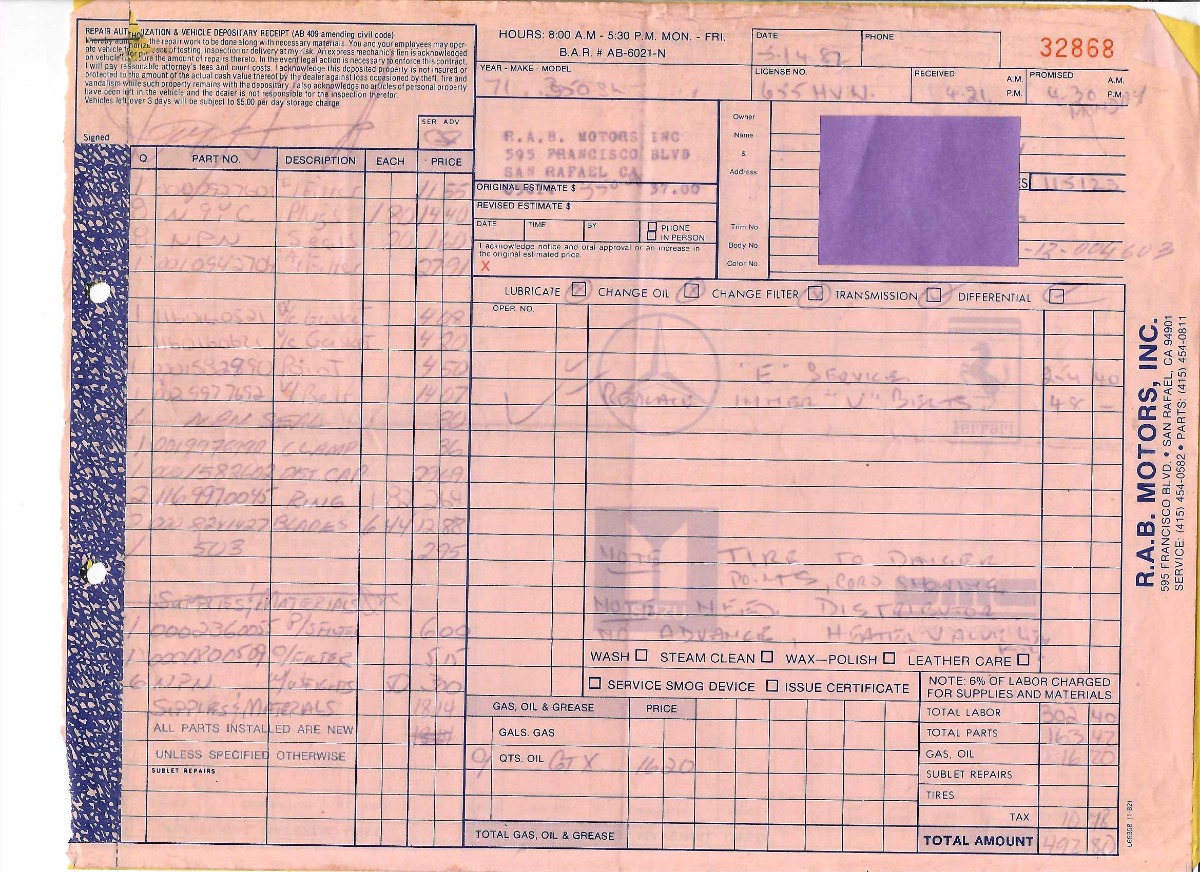 REPAIR AUTHORIZATION & VEHICLE DEPOSITARY RECEIPT (AB 409 amending civil code)
the repair work to be done along with necessary materials. You and your employees may oper-
ate vehicle for purposes of testing, inspection or delivery at my risk. An express mechanic's lien is acknowledged
on vehicle to secure the amount of repairs thereto. In the event legal action is necessary to enforce this contract,
I will pay reasonable attorney's fees and court costs. I acknowledge this deposited property is not insured or
protected to the amount of the actual cash value thereof by the dealer against loss occasioned by theft, fire and
vandalism while such property remains with the depositary. I also acknowledge no articles of personal property
have been left in the vehicle and the dealer is not responsible for the inspection therefor.
Vehicles left over 3 days will be subject to $5.00 per day storage charge
Signed
SER ADV
HOURS: 8:00 A.M - 5:30 P.M. MON. - FRI.
B.A.R. # AB-6021-N
YEAR - MAKE - MODEL
71
DATE
PHONE
32868
LICENSE NO.
655 HVN
RECEIVED A.M. P.M.
4.21
PROMISED A.M. P.M.
4.30
R.A.B. MOTORS INC
595 FRANCISCO BLVD
SAN RAFAEL CA
ORIGINAL ESTIMATE $ 37.00
REVISED ESTIMATE $
DATE TIME BY PHONE
IN PERSON
I acknowledge notice and oral approval or an increase in
the original estimated price.
X
Owner
Name
&
Address
115122
Trim No
Body No.
-12-004603
Color No.
Q PART NO. DESCRIPTION EACH PRICE
1 11.55
8 N9YC Plugs 1 80 14 40
8 NPN 1 60
1 27 91
1 V/C Gasket 4 08
V/C Gasket 4 20
1 Point 4 50
V/Belt 14 07
1
1 CLAMP 36
1 0001582602 DIST CAP 29 69
2 1169970045 RING 1 32 2 64
2 0008241427 BLADES 6 44 12 88
1 503 2 95
SUPPLIES/MATERIALS
1 0002360055 P/S FILTER 6 00
1 0001801509 O/FILTER 5 15
6 NPN WEIGHTS 3 00
SUPPLIES & MATERIALS 18 14
ALL PARTS INSTALLED ARE NEW
UNLESS SPECIFIED OTHERWISE
SUBLET REPAIRS
LUBRICATE CHANGE OIL CHANGE FILTER TRANSMISSION DIFFERENTIAL
OPER NO.
"E" SERVICE 254 40
REPLACE INNER "V" BELTS 48 —
Ferrari
ISUZU
NOTE TIRE TO DANGER
POINTS, CORD SHOWING
NOTE NEED DISTRIBUTOR
NO ADVANCE, HEATER VALVE
WASH STEAM CLEAN WAX—POLISH LEATHER CARE
SERVICE SMOG DEVICE ISSUE CERTIFICATE
NOTE: 6% OF LABOR CHARGED
FOR SUPPLIES AND MATERIALS
GAS, OIL & GREASE PRICE
GALS. GAS
9 QTS. OIL GTX 16 20
TOTAL GAS, OIL & GREASE
TOTAL LABOR 302 40
TOTAL PARTS 163 47
GAS, OIL 16 20
SUBLET REPAIRS
TIRES
TAX
TOTAL AMOUNT 492 80
R.A.B. MOTORS, INC.
595 FRANCISCO BLVD. • SAN RAFAEL, CA 94901
SERVICE: (415) 454-0582 • PARTS: (415) 454-0811